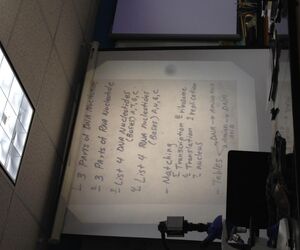 1 3 Parts of DNA Nucleotide
2 3 Parts of RNA Nucleotide
3 List 4 DNA Nucleotides
(Bases) A, T, G, C
4 List 4 RNA nucleotides
(Bases) A, U, G, C
- Matching
5 Transcription 8 ribosome
6 Translation 9 replication
7 nucleus
- Tables DNA → DNA